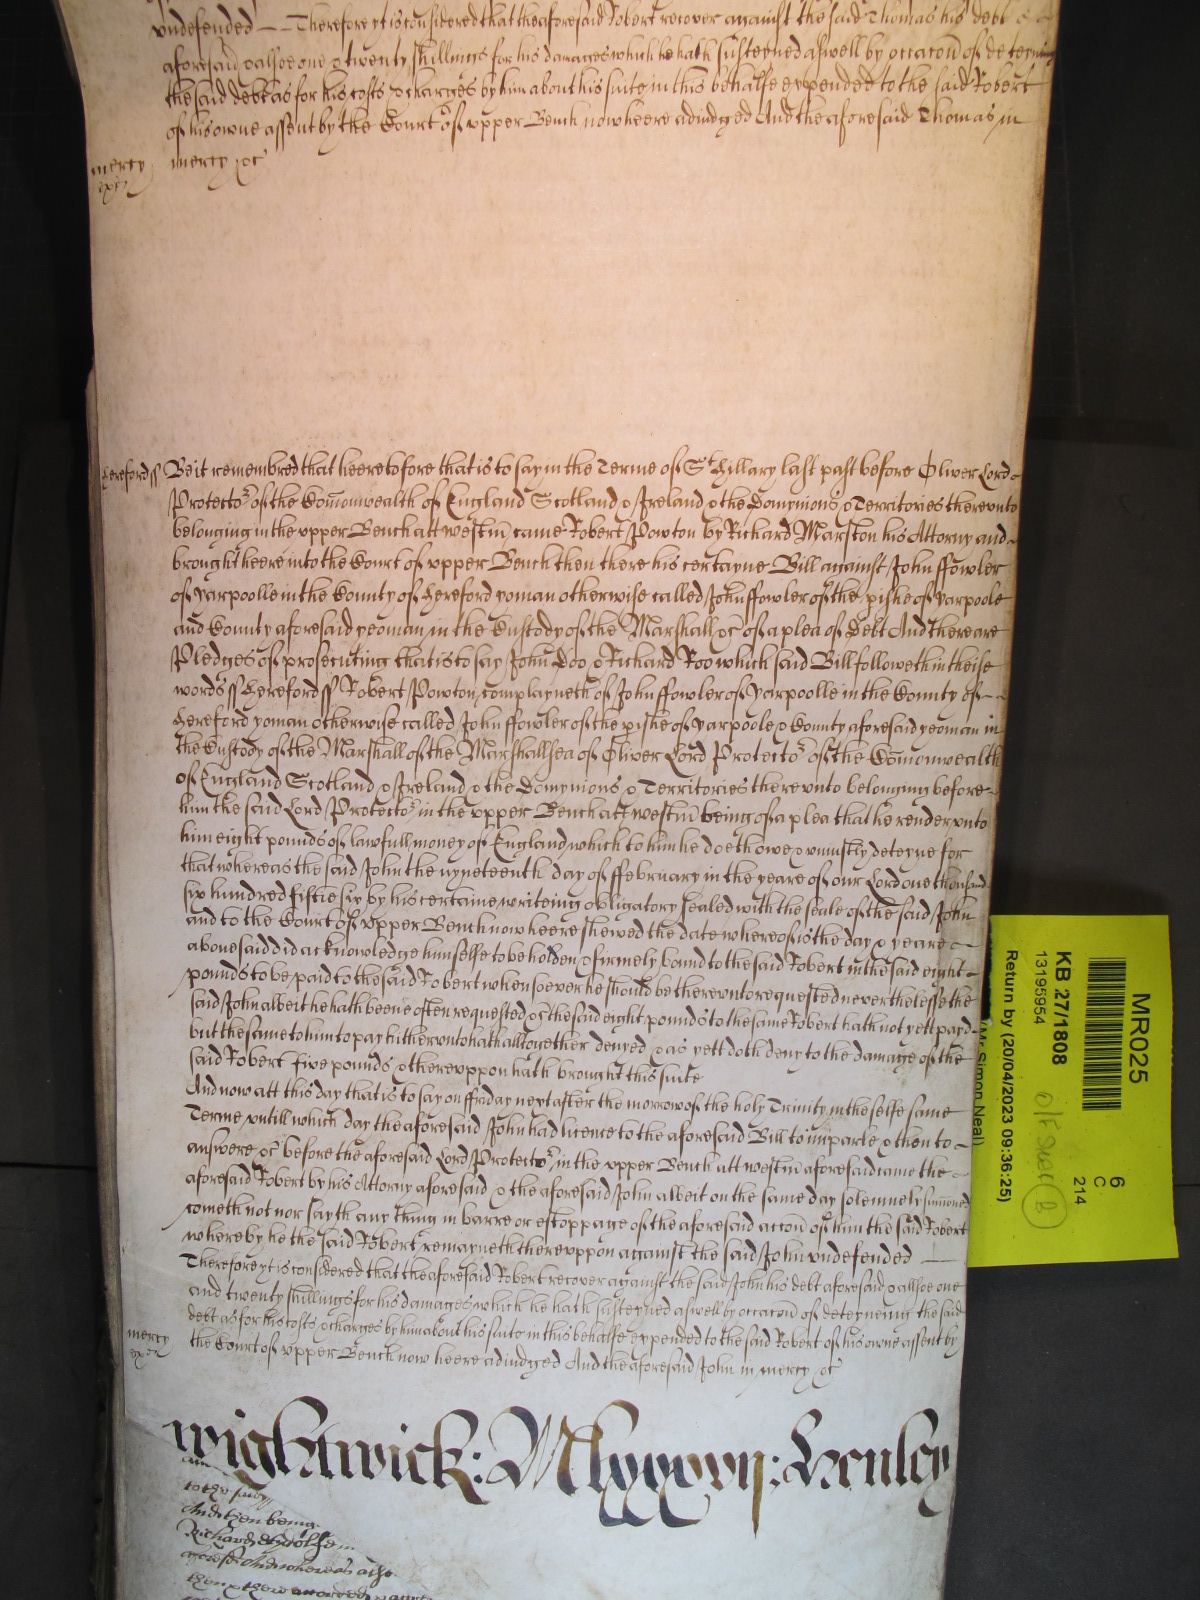 vndefended — Therefore yt is considered that the aforesaid Robert recover against the said Thomas his debt
aforesaid & alsoe one & twenty shillings for his damages which he hath susteyned aswell by occacon of deteyning
the said debt as for his costs & charges by him about his suite in this behalfe expended to the said Robert
of his owne assent by the Court of vpper Bench now heere adiudged And the aforesaid Thomas in
mercy mercy &c
Hereford ss Be it remembred that heeretofore that is to say in the Terme of St Hillary last past before Oliver Lord
Protector of the Comonwealth of England Scotland & Ireland & the Domynions & Territories therevnto
belonging in the vpper Bench att westm came Robert Powton by Richard Marston his Attorny and
brought heere into the Court of vpper Bench then there his certayne Bill against John ffowler
of yarpoolle in the County of Hereford yoman otherwise called John ffowler of the pishe of yarpoole
and County aforesaid yeoman in the Custody of the Marshall &c of a plea of Debt And there are
Pledges of prosecuting that is to say John Doo & Richard Roo which said Bill followeth in theise
words ss Hereford ss Robert Powton complayneth of John ffowler of yarpoolle in the County of
Hereford yoman otherwise called John ffowler of the pishe of yarpoole & County aforesaid yeoman in
the Custody of the Marshall of the Marshallsea of Oliver Lord Protector of the Comonwealth
of England Scotland & Ireland & the Domynions & Territories therevnto belonging before
him the said Lord Protector in the vpper Bench att westm being of a plea that he render vnto
him eight pounds of lawfull money of England which to him he doeth owe & vniustly deteyne for
that whereas the said John the nyneteenth day of ffebruary in the yeare of our Lord one thousand
six hundred fiftie six by his certaine writeing obligatory sealed with the seale of the said John
and to the Court of vpper Bench now heere shewed the date whereof is the day & yeare
abouesaid did acknowledge himselfe to be holden & firmely bound to the said Robert in the said eight
pounds to be paid to the said Robert when soever he should be therevnto requested neverthelesse the
said John albeit he hath beene often requested &c the said eight pounds to the same Robert hath not yett payd
but the same to him to pay hitherunto hath alltogether denyed & as yett doth deny to the damage of the
said Robert five pounds & therevppon hath brought this suite
And now att this day that is to say on ffriday next after the morrow of the holy Trinity in the selfe same
Terme vntill which day the aforesaid John had licence to the aforesaid Bill to imparle & then to
answere &c before the aforesaid Lord Protector in the vpper Bench att westm aforesaid came the
aforesaid Robert by his Attorny aforesaid & the aforesaid John albeit on the same day solemnely sumoned
cometh not nor sayth any thing in barre or estoppage of the aforesaid accon of him the said Robert
whereby he the said Robert remayneth therevppon against the said John vndefended
Therefore yt is considered that the aforesaid Robert recover against the said John his debt aforesaid & allsoe one
and twenty shillings for his damages which he hath susteyned aswell by occacon of deteyneing the said
debt as for his costs & charges by him about his suite in this behalfe expended to the said Robert of his owne assent by
mercy the Court of vpper Bench now heere adiudged And the aforesaid John in mercy &c
wightwick: Mlxxxvij: Henley
to the said
And then being
Richard
MR025
KB 27/1808
13195954
Return by (20/04/2023 09:36:25)
Mr Simon Neal)
6
C
214
B